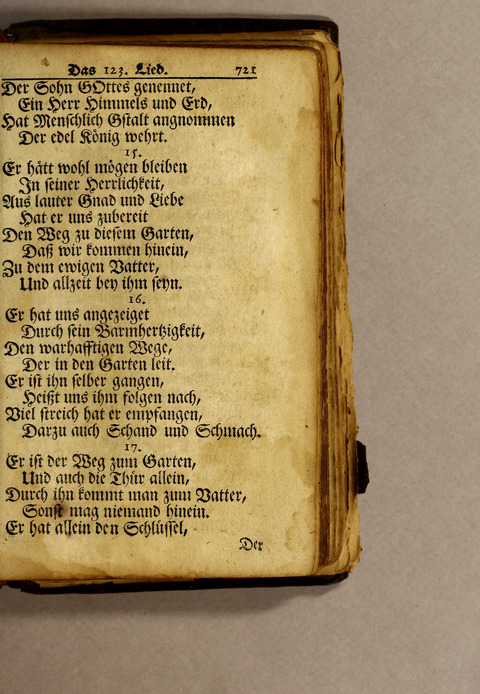 Das 123. Lied. 721
Der Sohn GOttes genennet,
Ein Herr Himmels und Erd,
Hat Menschlich Gstalt angnommen
Der edel König wehrt.
15.
Er hätt wohl mögen bleiben
In seiner Herrlichkeit,
Aus lauter Gnad und Liebe
Hat er uns zubereit
Den Weg zu diesem Garten,
Daß wir kommen hinein,
Zu dem ewigen Vatter,
Und allzeit bey ihm seyn.
16.
Er hat uns angezeiget
Durch sein Barmhertzigkeit,
Den warhafftigen Wege,
Der in den Garten leit.
Er ist ihn selber gangen,
Heißt uns ihm folgen nach,
Viel streich hat er empfangen,
Darzu auch Schand und Schmach.
17.
Er ist der Weg zum Garten,
Und auch die Thür allein,
Durch ihn kommt man zum Vatter,
Sonst mag niemand hinein.
Er hat allein den Schlüssel,
Der